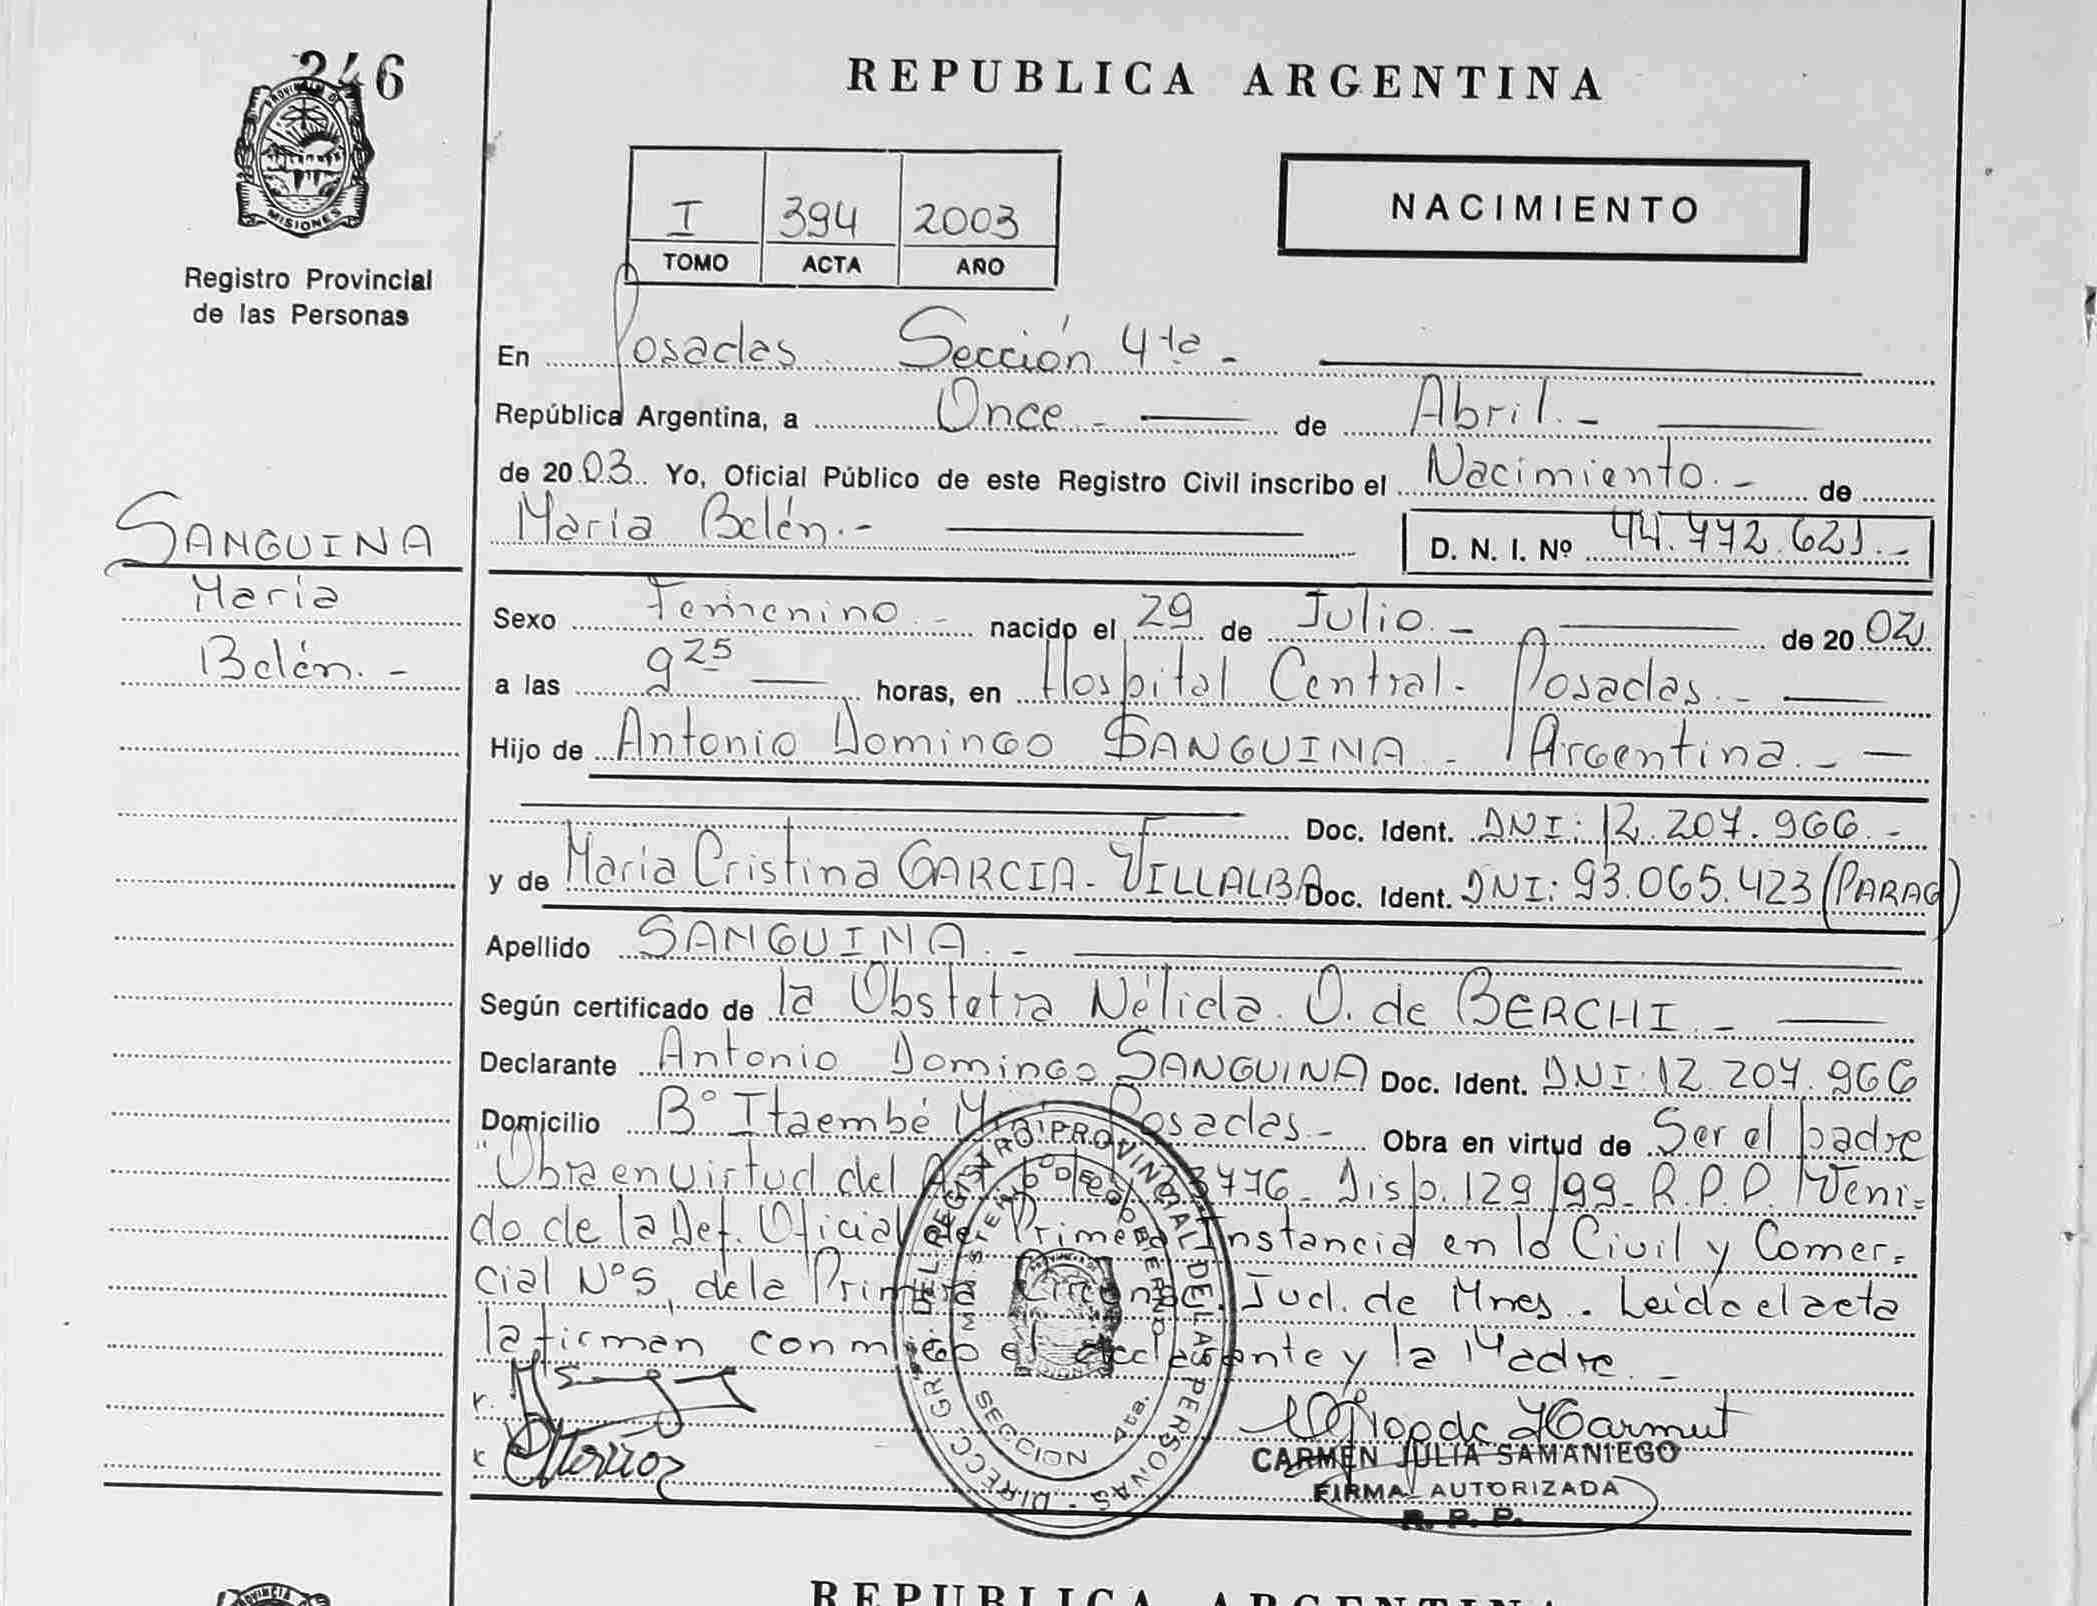 246
REPUBLICA ARGENTINA
PROVINCIA DE
MISIONES
Registro Provincial
de las Personas
I 394 2003
TOMO ACTA AÑO
NACIMIENTO
En Posadas Sección 4ta -
República Argentina, a Once - de Abril. -
de 2003. Yo, Oficial Público de este Registro Civil inscribo el Nacimiento. - de
María Belén. -
D. N. I. Nº 44.472.621. -
SANGUINA
María
Belén. -
Sexo Femenino. - nacido el 29 de Julio. - de 2002
a las 9 25 horas, en Hospital Central - Posadas. -
Hijo de Antonio Domingo SANGUINA - Argentina. -
Doc. Ident. DNI: 12.207.966. -
y de María Cristina GARCIA - VILLALBA Doc. Ident. DNI: 93.065.423 (PARAG)
Apellido SANGUINA. -
Según certificado de la Obstetra Nélida O. de BERCHI. -
Declarante Antonio Domingo SANGUINA Doc. Ident. DNI: 12.207.966
Domicilio Bº Itaembé Posadas. - Obra en virtud de Ser el padre
"Obra en virtud del Disp. 129/99 - R.P.P. Veni=
do de la Def. Oficial de Primera Instancia en lo Civil y Comer=
cial Nº5, de la Primera Jud. de Mnes. - Leida el acta
la firman conmigo el declarante y la Madre. -
DIRECC. GRAL. DEL REGISTRO PROVINCIAL DE LAS PERSONAS
MINISTERIO DE GOBIERNO
SECCION 4ta.
CARMEN JULIA SAMANIEGO
FIRMA AUTORIZADA
R. P. P.
PROVINCIA
REPUBLICA ARGENTINA